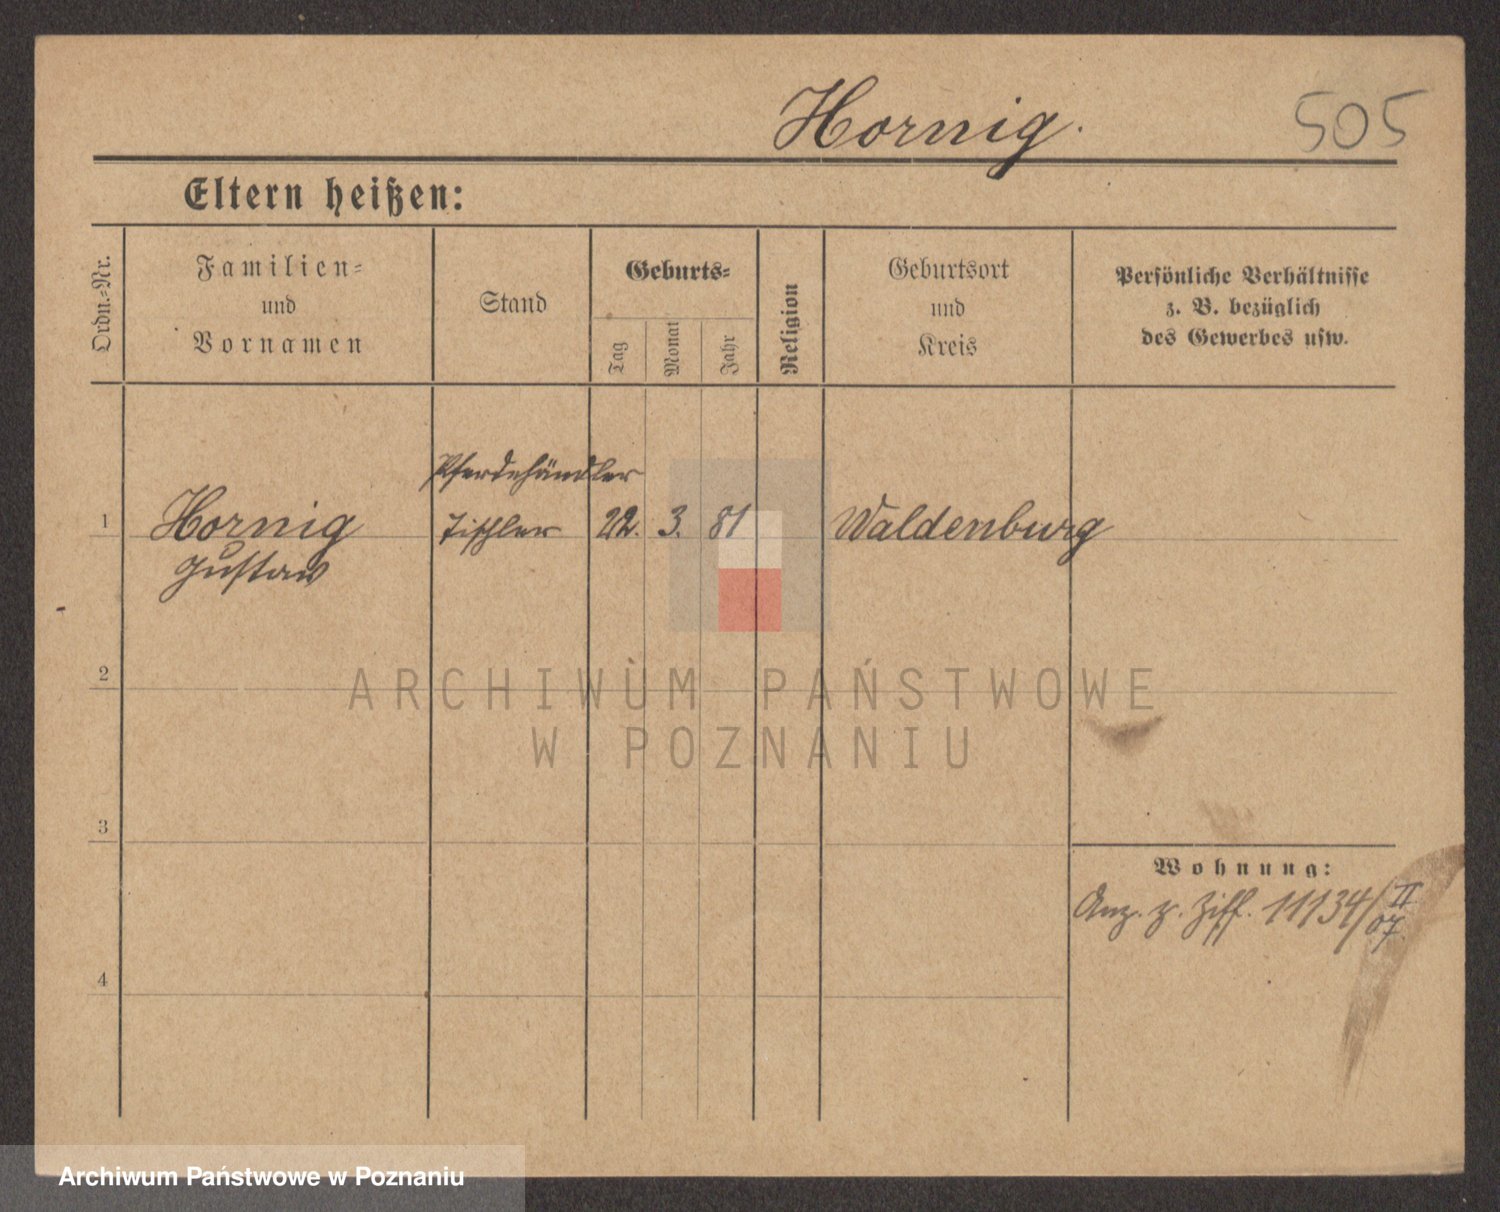 Hornig.
505
Eltern heißen:
Ordn.-Nr.
Familien-
und
Vornamen
Stand
Geburts-
Tag
Monat
Jahr
Religion
Geburtsort
und
Kreis
Persönliche Verhältnisse
z. B. bezüglich
des Gewerbes usw.
Pferdehändler
1 Hornig Tischler 22. 3. 81 Waldenburg
Gustav
2
3
4
Wohnung:
Anz. z. Ziff. 11134/II
07.
ARCHIWUM PAŃSTWOWE
W POZNANIU
Archiwum Państwowe w Poznaniu